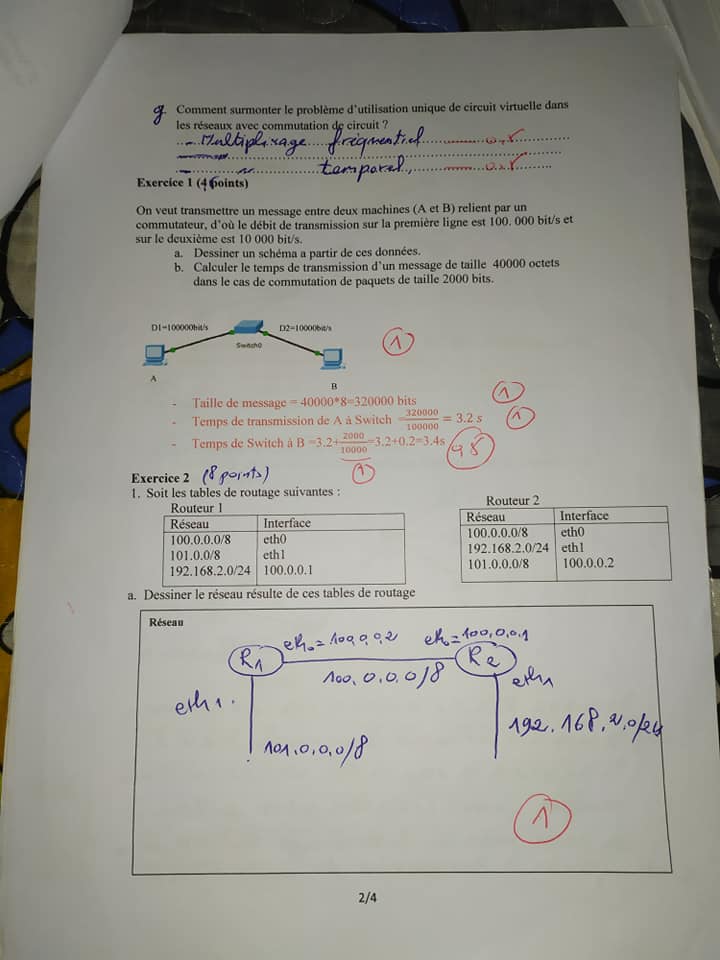 g Comment surmonter le problème d'utilisation unique de circuit virtuelle dans
les réseaux avec commutation de circuit ?
- Multiplexage fréquentiel 0,5
- temporel, 0.5
Exercice 1 (4 points)
On veut transmettre un message entre deux machines (A et B) relient par un
commutateur, d'où le débit de transmission sur la première ligne est 100. 000 bit/s et
sur le deuxième est 10 000 bit/s.
a. Dessiner un schéma a partir de ces données.
b. Calculer le temps de transmission d'un message de taille 40000 octets
dans le cas de commutation de paquets de taille 2000 bits.
D1=100000bit/s D2=10000bit/s
Switch0
1
A
B
- Taille de message = 40000*8=320000 bits 1
- Temps de transmission de A à Switch = 320000/100000 = 3.2 s 1
- Temps de Switch à B =3.2+2000/10000=3.2+0.2=3.4s
1
Exercice 2 (8 points)
1. Soit les tables de routage suivantes :
Routeur 1
Réseau Interface
100.0.0.0/8 eth0
101.0.0/8 eth1
192.168.2.0/24 100.0.0.1
Routeur 2
Réseau Interface
100.0.0.0/8 eth0
192.168.2.0/24 eth1
101.0.0.0/8 100.0.0.2
a. Dessiner le réseau résulte de ces tables de routage
Réseau
R1 eth0=100,0,0,2 eth0=100,0,0,1 R2
100.0.0.0/8
eth1. eth1
101.0.0.0/8 192.168.2.0/24
1
2/4